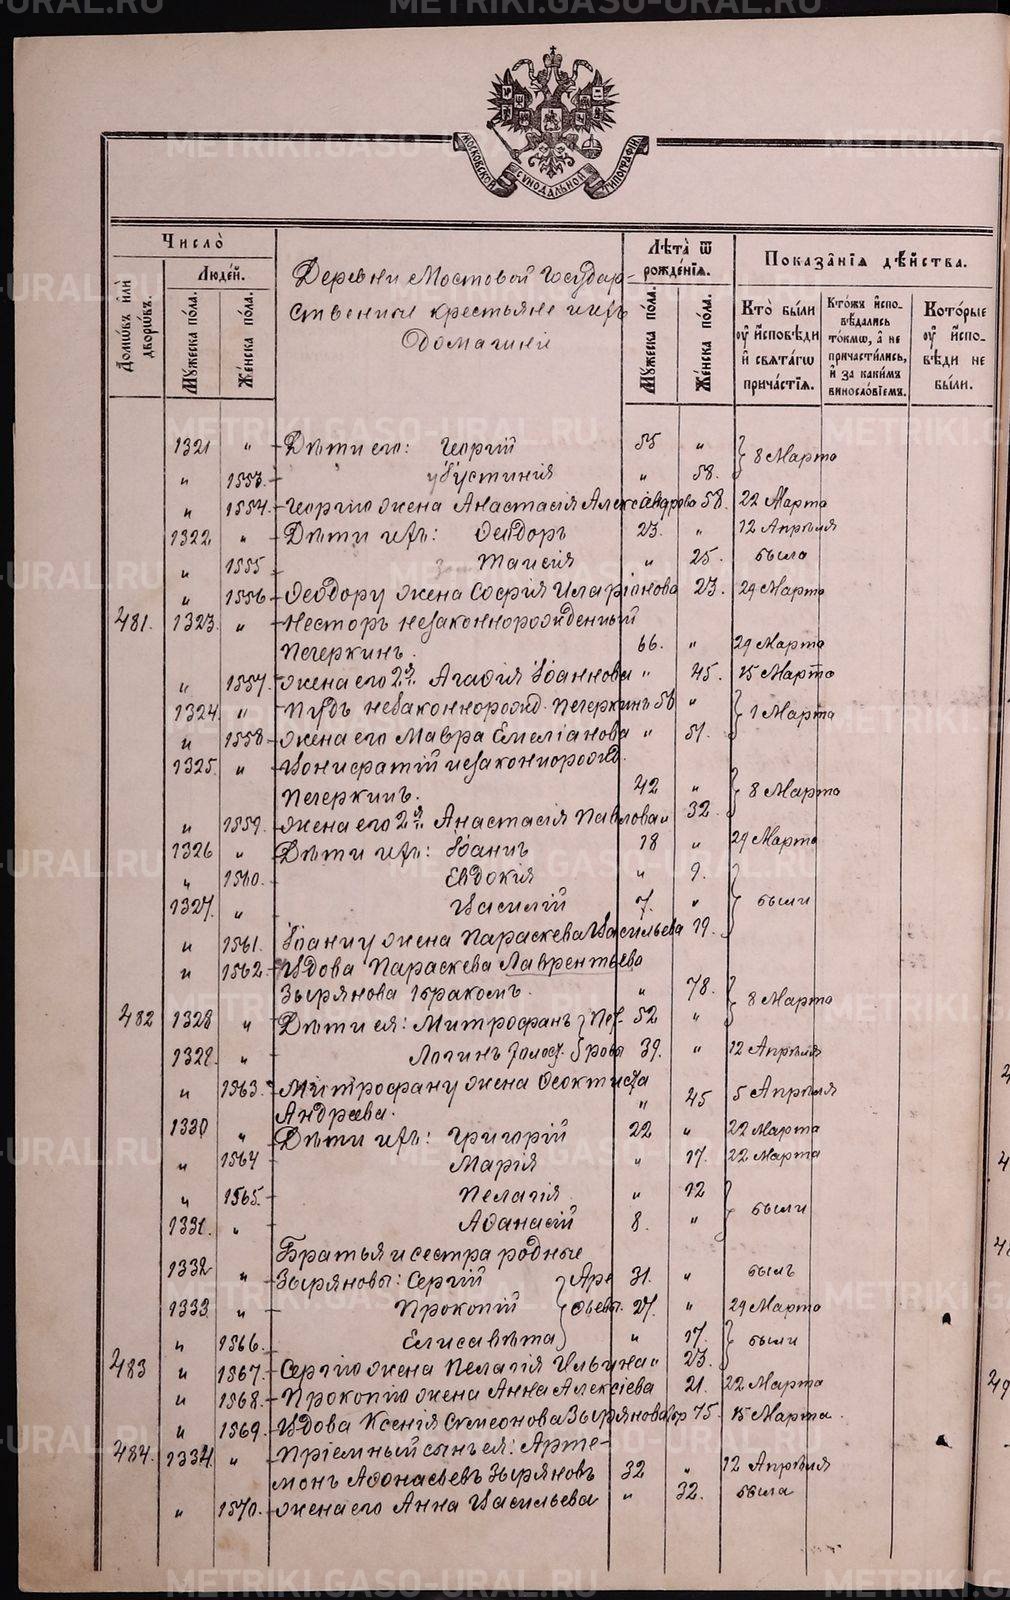 МОСКОВСКОЙ СѴНОДАЛЬНОЙ ТИПОГРАФІИ
Число̀
Домѡвъ и҆лѝ дворѡвъ.
Людей.
Мужеска по́ла.
Же́нска по́ла.
Деревни Мостовой Государ-
ственные крестьяне и ихъ
домашніе
Лѣта̀ ѿ рожде́нїѧ.
Мужеска по́ла.
Же́нска по́ла.
Показа̑нїѧ дѣ́йства.
Кто̀ бы́ли ᲂу҆ и҆сповѣди и҆ свѧта́гѡ прича́стїѧ.
Кто́жъ и҆спо-вѣдались то́кмѡ, а҆ не причасти́лись, и҆ за каки́мъ винослові́емъ.
Кото́рые ᲂу҆ и҆спо-вѣди не бы́ли.
1321 " Дѣти его: Георгій 55 " 8 Марта
" 1553. Іустинія " 58.
" 1554. Георгію жена Анастасія Александрова 58. 22 Марта
1322 " Дѣти ихъ: Ѳеодоръ 23. " 12 Апрѣля
" 1555 Таисія " 25. была
" 1556 Ѳеодору жена Софія Иларіонова 23. 29 Марта
481. 1323. " Несторъ незаконнорожденный
Печеркинъ. 66. " 29 Марта
" 1557. жена его 2я Агафія Іоаннова " 45. 15 Марта
1324. " Пудъ незаконнорожд. Печеркинъ 56 " 1 Марта
" 1558. жена его Мавра Емеліанова " 51.
1325. " Вонифатій незаконнорожд.
Печеркинъ. 42 " 8 Марта
" 1559. жена его 2я Анастасія Павлова " 32.
1326 " Дѣти ихъ: Іоаннъ 18 " 29 Марта
" 1560. Евдокія " 9. были
1327. " Василій 7. "
" 1561. Іоанну жена Параскева Васильева 19.
" 1562. Вдова Параскева Лаврентьева
Зырянова 1 бракомъ. " 78. 8 Марта
482 1328 " Дѣти ея: Митрофанъ Пет- 52 "
1328. " Логинъ холост. ровы 39. " 12 Апрѣля
" 1563. Митрофану жена Ѳеоктиста
Андреева. " 45 5 Апрѣля
1330 " Дѣти ихъ: Григорій 22 " 22 Марта
" 1564 Марія " 17. 22 Марта
" 1565. Пелагія " 12 были
1331. " Аѳанасій 8. "
Братья и сестра родные
1332 " Зыряновы: Сергій Аре- 31. " былъ
1333 " Прокопій ѳьевы. 27. " 29 Марта
" 1566. Елисавѣта " 17. были
483 " 1567. Сергію жена Пелагія Ильина " 23.
" 1568. Прокопію жена Анна Алексіева 21. 22 Марта
" 1569. Вдова Ксенія Симеонова Зырянова 75. 15 Марта.
484. 1334. " Пріемный сынъ ея: Арте-
монъ Аѳонасьевъ Зыряновъ 32 " 12 Апрѣля
" 1570. жена его Анна Васильева " 32. была
METRIKI.GASO-URAL.RU